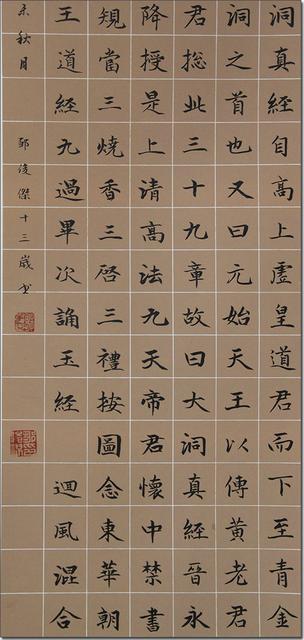 洞真經自高上虛皇道君而下至青金
洞之首也又曰元始天王以傳黃老君
君捴此三十九章故曰大洞真經晉永
降授是上清高法九天帝君懷中禁書
規當三燒香三啓三禮按圖念東華朝
王道經九過畢次誦玉經 迴風混合
未秋月 鄒俊傑十三歲书